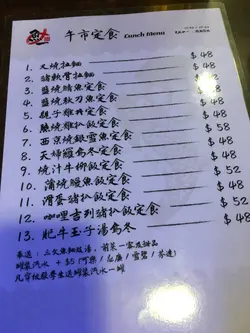 午市定食 Lunch Menu
1. 叉燒拉麵 $48
2. 豬軟骨拉麵 $48
3. 鹽燒鯖魚定食 $48
4. 鹽燒秋刀魚定食 $48
5. 親子雞丼定食 $48
6. 燒雞扒飯定食 $48
7. 西京燒銀雪魚定食 $58
8. 天婦羅烏冬定食 $48
9. 燒汁牛柳飯定食 $48
10. 蒲燒鰻魚飯定食 $58
11. 滑蛋豬扒飯定食 $48
12. 咖哩吉列豬扒飯定食 $48
13. 肥牛玉子湯烏冬 $52
罐裝汽水 + $5